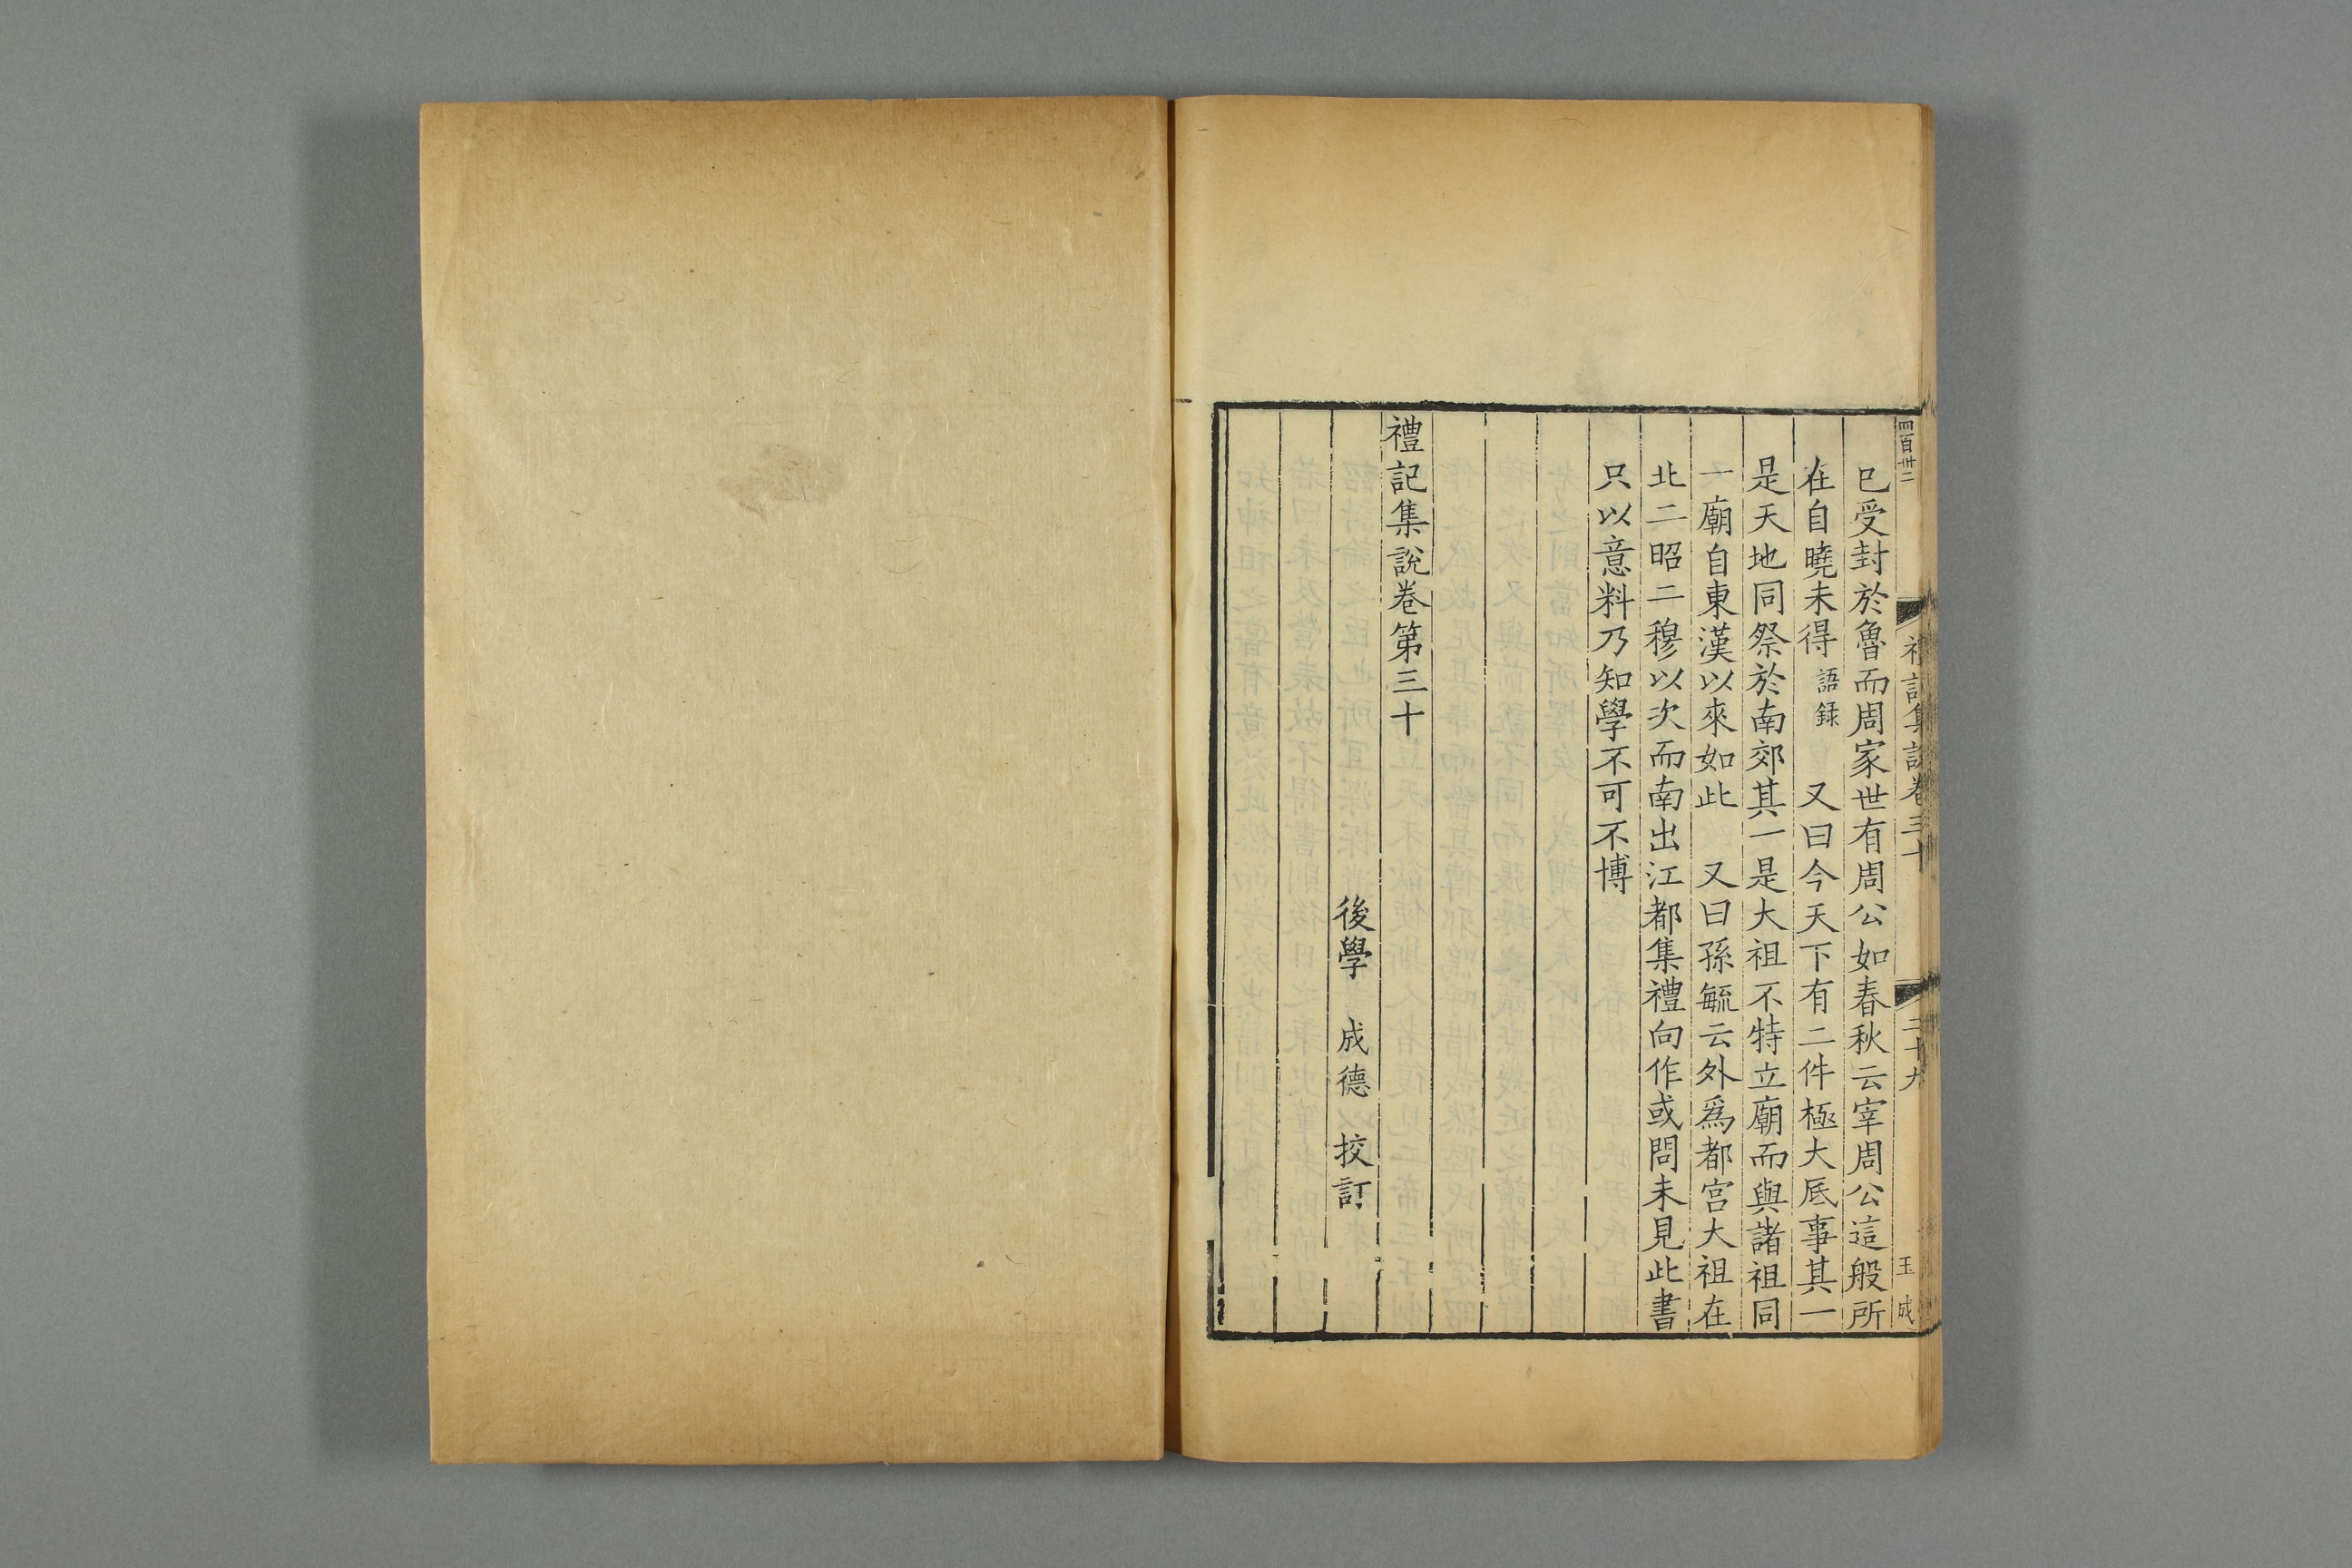 四百卅二
禮記集說卷三十
二十九
玉成
已受封於魯而周家世有周公如春秋云宰周公這般所
在自曉未得語録　又曰今天下有二件極大底事其一
是天地同祭於南郊其一是大祖不特立廟而與諸祖同
一廟自東漢以來如此　又曰孫毓云外爲都宮大祖在
北二昭二穆以次而南出江都集禮向作或問未見此書
只以意料乃知學不可不博
禮記集說卷第三十
後學　成德　挍訂